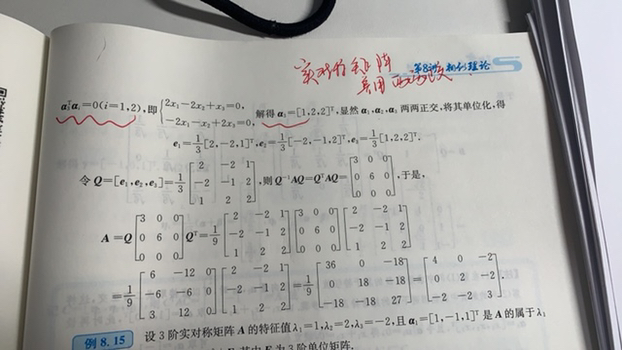 实对称矩阵
第8讲 相似理论
α₃ᵀαᵢ=0(i=1,2),即{2x₁-2x₂+x₃=0, -2x₁-x₂+2x₃=0, 解得 α₃=[1,2,2]ᵀ,显然 α₁,α₂,α₃ 两两正交,将其单位化,得
e₁=1/3[2,-2,1]ᵀ,e₂=1/3[-2,-1,2]ᵀ,e₃=1/3[1,2,2]ᵀ.
令 Q=[e₁,e₂,e₃]=1/3[2 -2 1; -2 -1 2; 1 2 2],则 Q⁻¹AQ=QᵀAQ=[3 0 0; 0 6 0; 0 0 0],于是,
A=Q[3 0 0; 0 6 0; 0 0 0]Qᵀ=1/9[2 -2 1; -2 -1 2; 1 2 2][3 0 0; 0 6 0; 0 0 0][2 -2 1; -2 -1 2; 1 2 2]
=1/9[6 -12 0; -6 -6 0; 3 12 0][2 -2 1; -2 -1 2; 1 2 2]=1/9[36 0 -18; 0 18 -18; -18 -18 27]=[4 0 -2; 0 2 -2; -2 -2 3].
例 8.15 设 3 阶实对称矩阵 A 的特征值 λ₁=1,λ₂=2,λ₃=-2,且 α₁=[1,-1,1]ᵀ 是 A 的属于 λ₁
其中 E 为 3 阶单位矩阵.